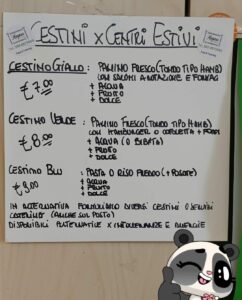 CESTINI x CENTRI ESTIVI
CESTINO GIALLO: PANINO FRESCO (TONDO TIPO HAMB)
€ 7,00 CON SALUMI A ROTAZIONE E FORMAG
+ ACQUA
+ FRUTTO
+ DOLCE
CESTINO VERDE: PANINO FRESCO (TONDO TIPO HAMB)
€ 8,00 CON HAMBURGER O COTOLETTA +
+ ACQUA (O BIBITA)
+ FRUTTO
+ DOLCE
CESTINO BLU: PASTA O RISO FREDDO (+ POSATE)
€ 9,00 + ACQUA
+ FRUTTO
+ DOLCE
IN ALTERNATIVA FORMULIAMO DIVERSI CESTINI O SERVIZI
CATERING (ANCHE SUL POSTO)
DISPONIBILI ALTERNATIVE x INTOLLERANZE E ALLERGIE